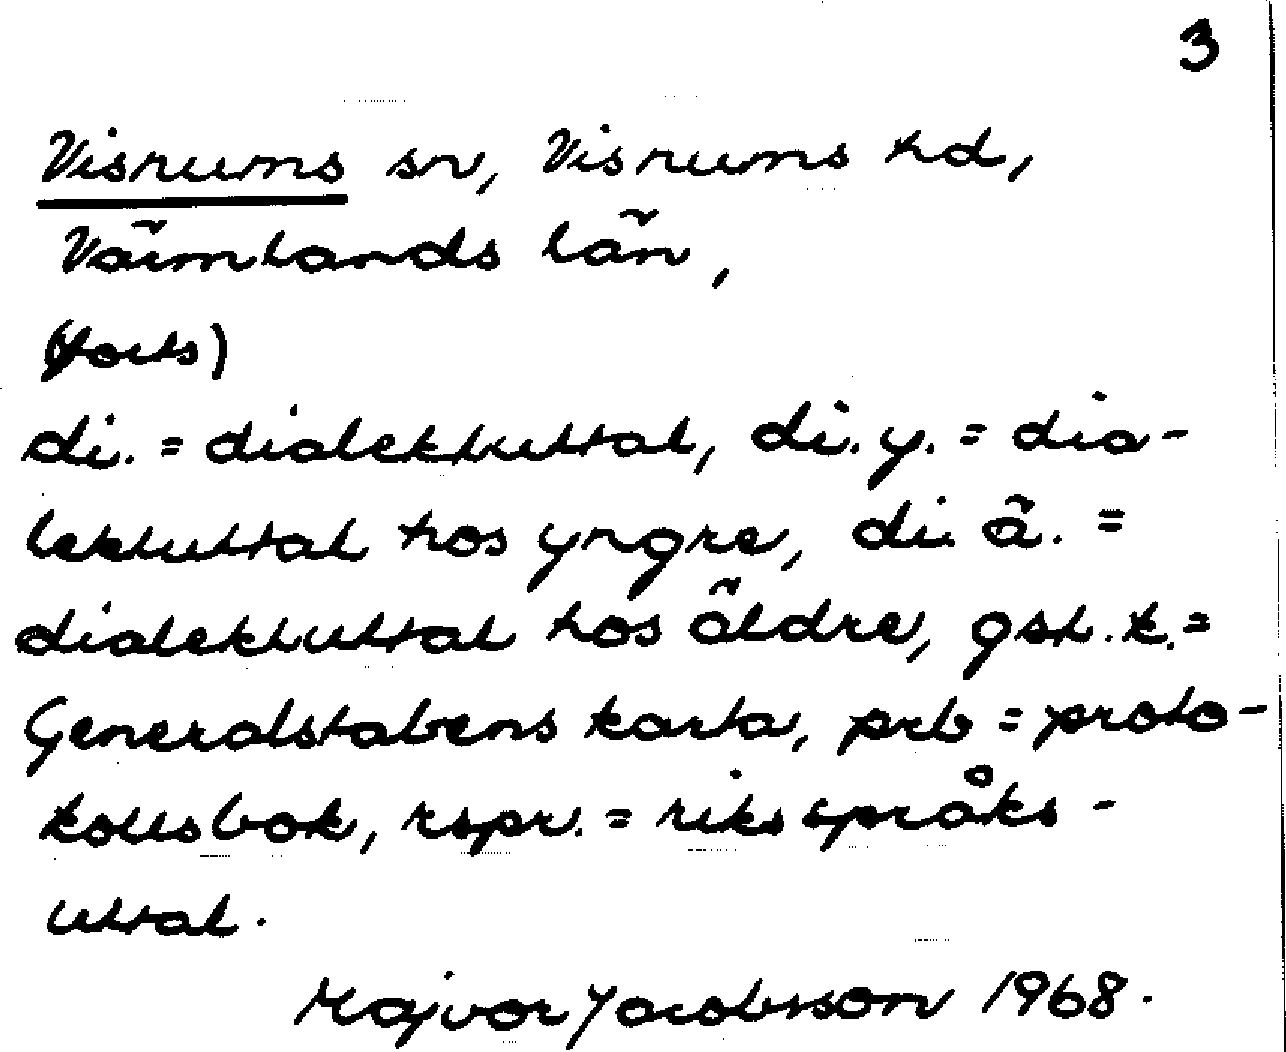 3
Visnums sn, Visnums hd,
Värmlands län,
(forts)
di. = dialektuttal, di. y. = dia-
lektuttal hos yngre, di. ä. =
dialektuttal hos äldre, gst. k. =
Generalstabens karta, prb = proto-
kollsbok, rspr. = riksspråks-
uttal.
Majvor Jacobsson 1968.